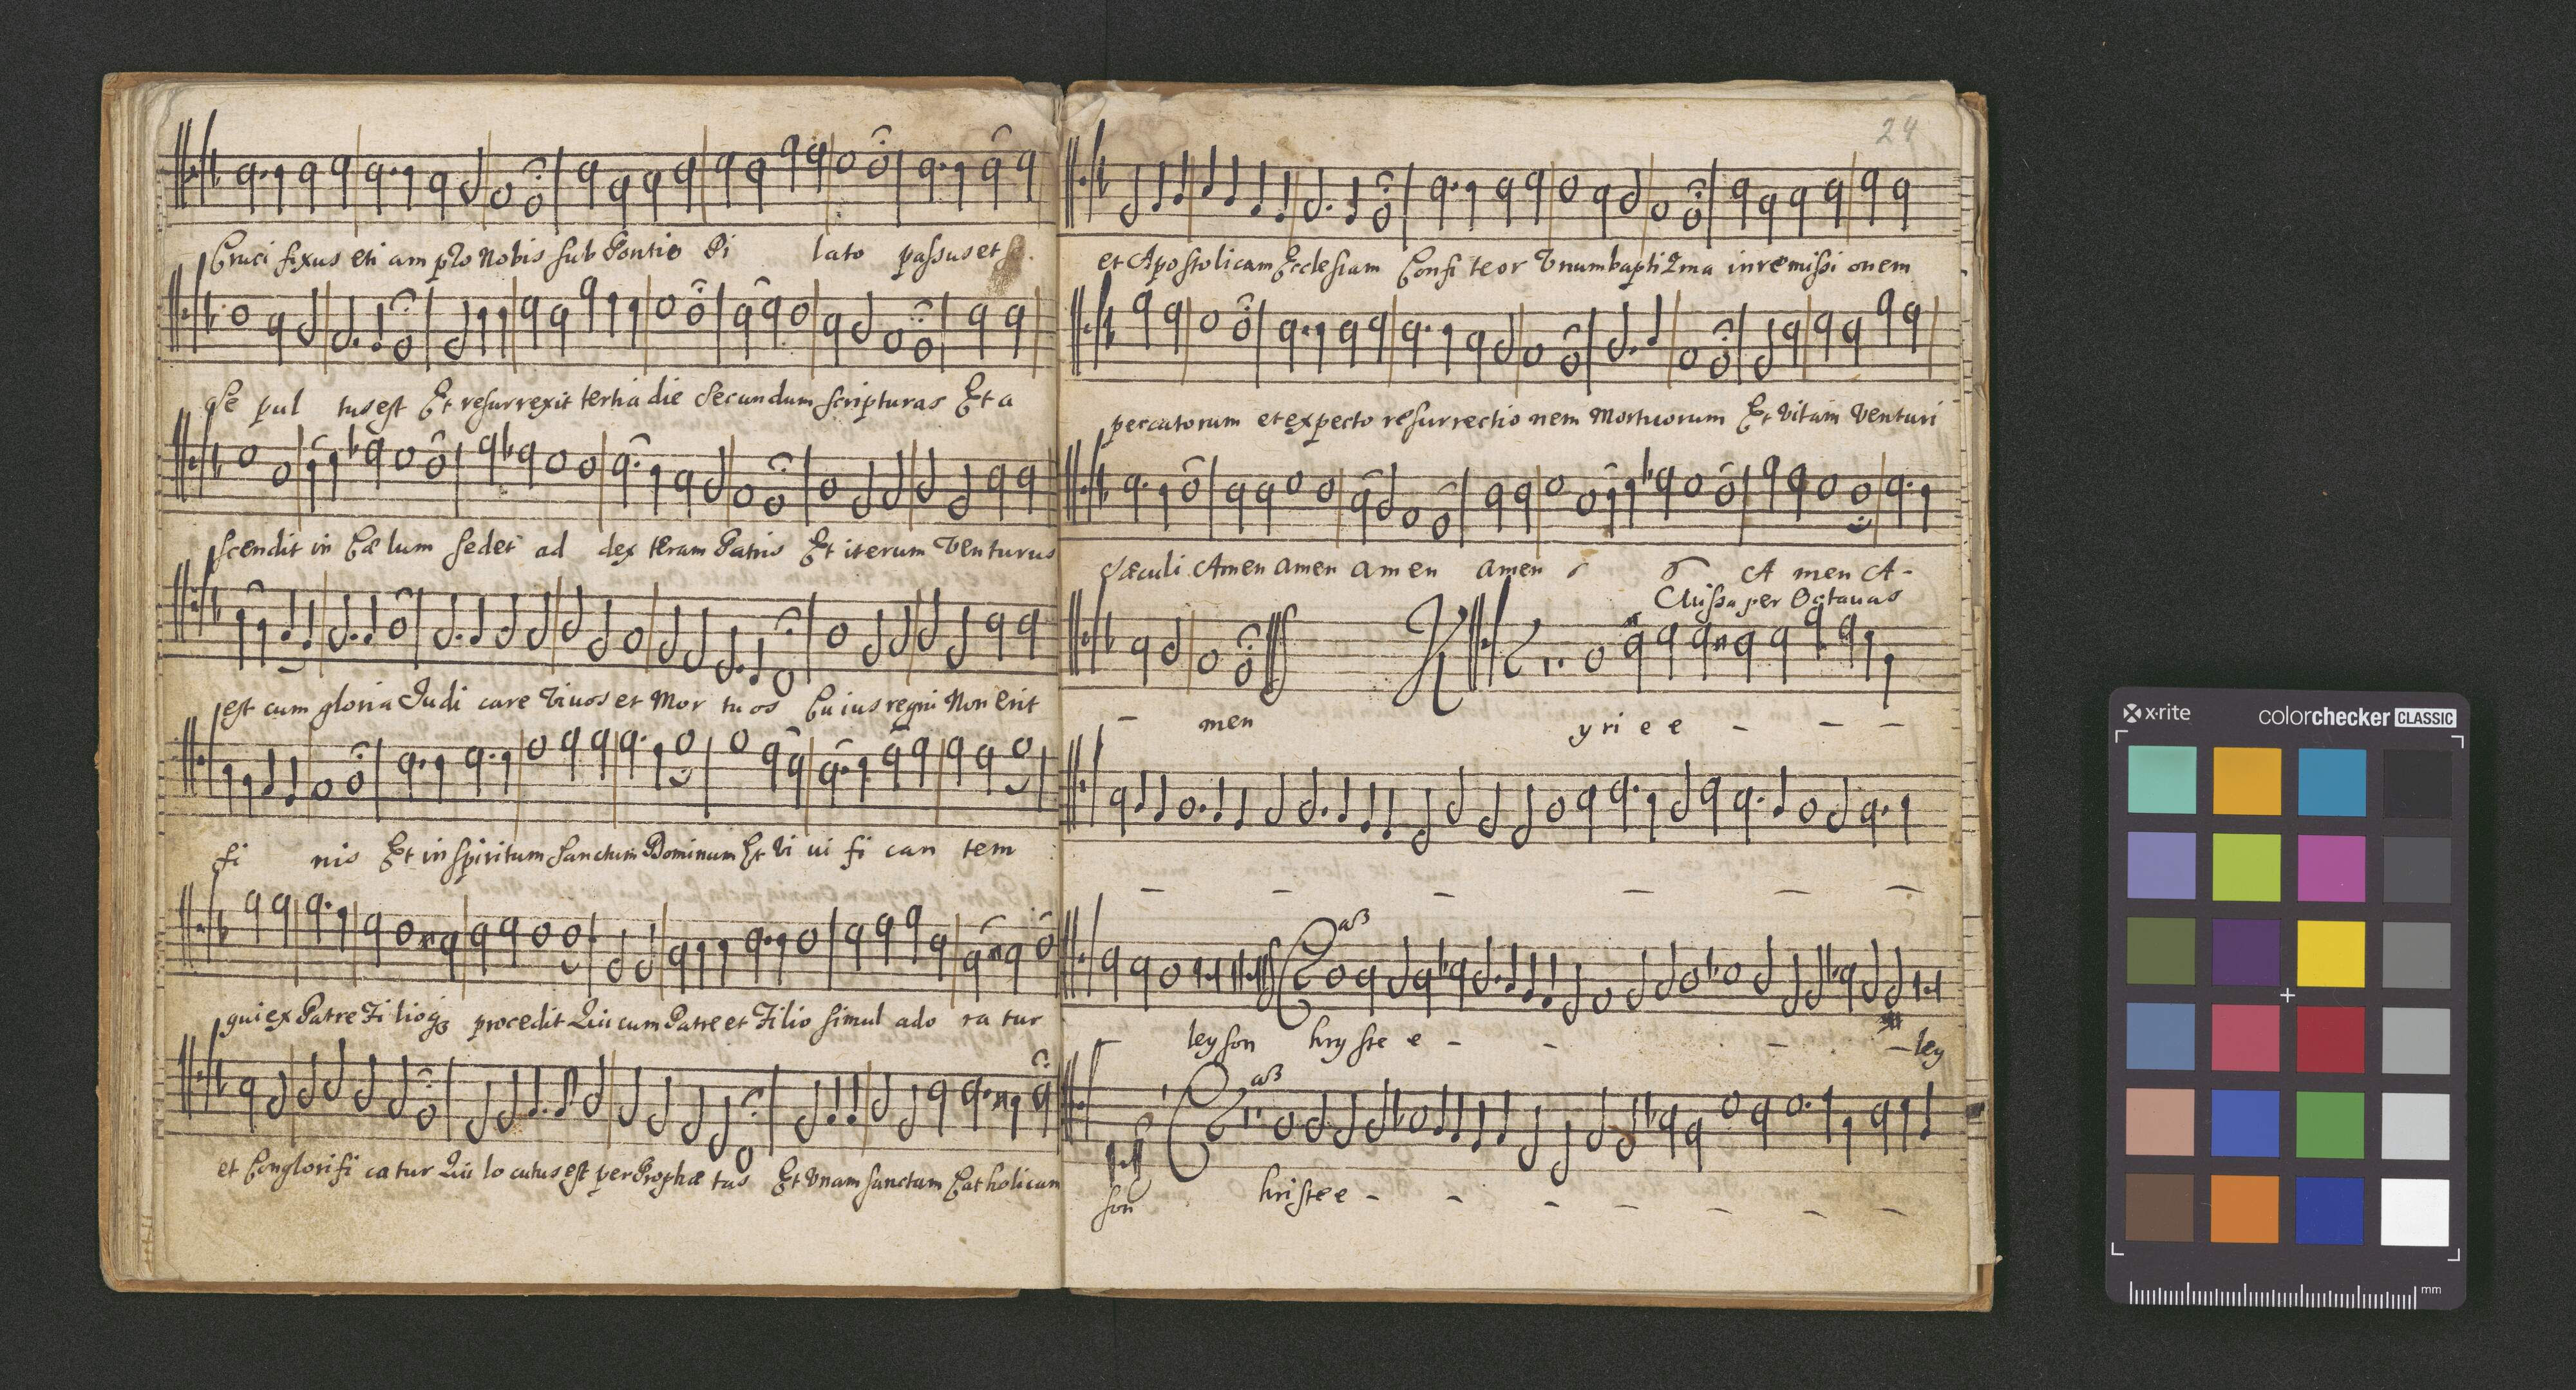 Cruci fixus eti am pro Nobis sub Pontio Pi lato passus et
se pul tus est Et resurrexit tertia die Secundum scripturas Et a
scendit in Cælum sedet ad dex teram Patris Et iterum Venturus
est cum gloria Judi care Vivos et Mor tu os Cu ius regni Non erit
fi nis Et in spiritum Sanctum Dominum Et Vi ui fi can tem
qui ex Patre Fi lioqz procedit Qui cum Patre et Filio simul ado ra tur
et Conglorifi ca tur Qui lo cutus est per Prophæ tas Et Vnam sanctam Catholicam
24
et Apostolicam Ecclesiam Confi teor Vnum baptiZma in remissi onem
peccatorum et expecto resurrectio nem Mortuorum Et Vitam Venturi
Sæculi Amen Amen amen amen A men A -
Missa per Octauas
- men K y ri e e - - -
- - - - - -
leyson hry ste e - - - - ley
a3
a3
son hriste e - - - - - - -
x·rite colorchecker CLASSIC
mm